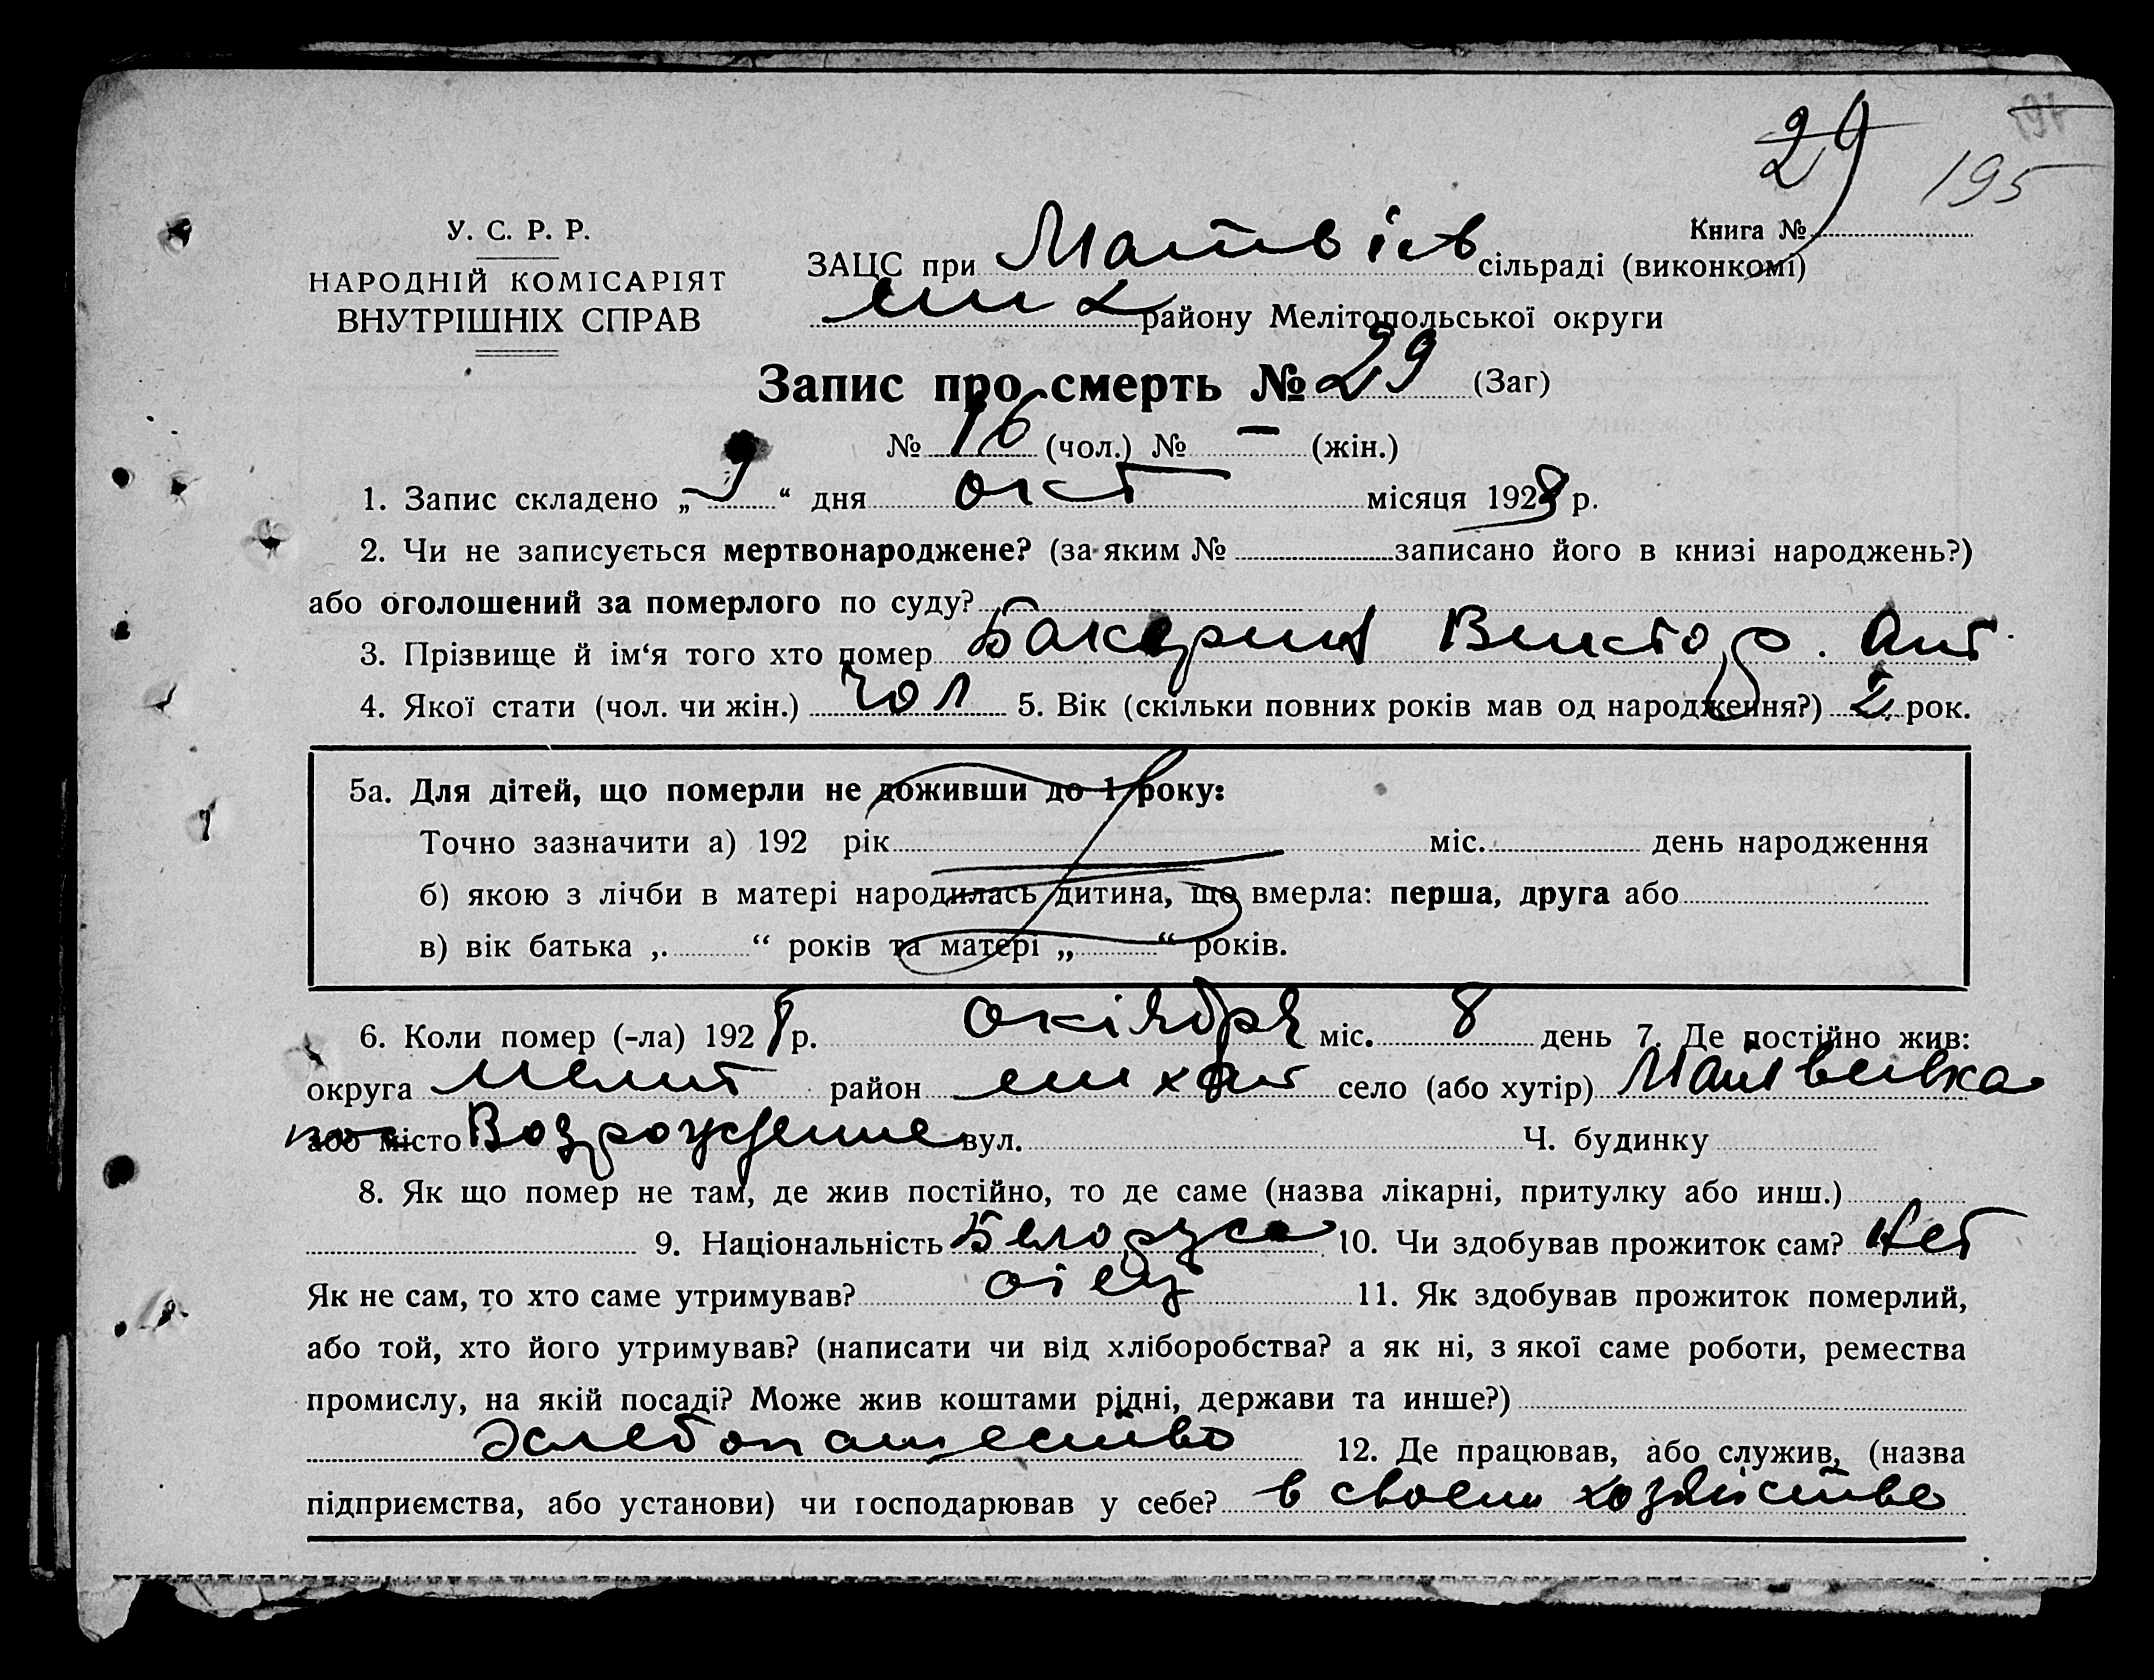 29
195
У. С. Р. Р.
НАРОДНІЙ КОМІСАРІЯТ
ВНУТРІШНІХ СПРАВ
Книга №
ЗАЦС при Матвіів сільраді (виконкомі)
району Мелітопольської округи
Запис про смерть № 29 (Заг)
№ 16 (чол.) № — (жін.)
1. Запис складено „9“ дня окт місяця 1928 р.
2. Чи не записується мертвонароджене? (за яким № записано його в книзі народжень?)
або оголошений за померлого по суду?
3. Прізвище й ім‘я того хто помер Виктор. Ант
4. Якої стати (чол. чи жін.) чол 5. Вік (скільки повних років мав од народження?) 2 рок.
5а. Для дітей, що померли не доживши до 1 року:
Точно зазначити а) 192 рік міс. день народження
б) якою з лічби в матері народилась дитина, що вмерла: перша, друга або
в) вік батька „ “ років та матері „ “ років.
6. Коли помер (-ла) 1928 р. октября міс. 8 день 7. Де постійно жив:
округа Мелит район село (або хутір) Матвеевка
або місто Возрождение вул. Ч. будинку
8. Як що помер не там, де жив постійно, то де саме (назва лікарні, притулку або инш.)
9. Національність Белорус 10. Чи здобував прожиток сам? Нет
Як не сам, то хто саме утримував? отец 11. Як здобував прожиток померлий,
або той, хто його утримував? (написати чи від хліборобства? а як ні, з якої саме роботи, ремества
промислу, на якій посаді? Може жив коштами рідні, держави та инше?)
Хлебопашество 12. Де працював, або служив, (назва
підприємства, або установи) чи господарював у себе? в своем хозяйстве